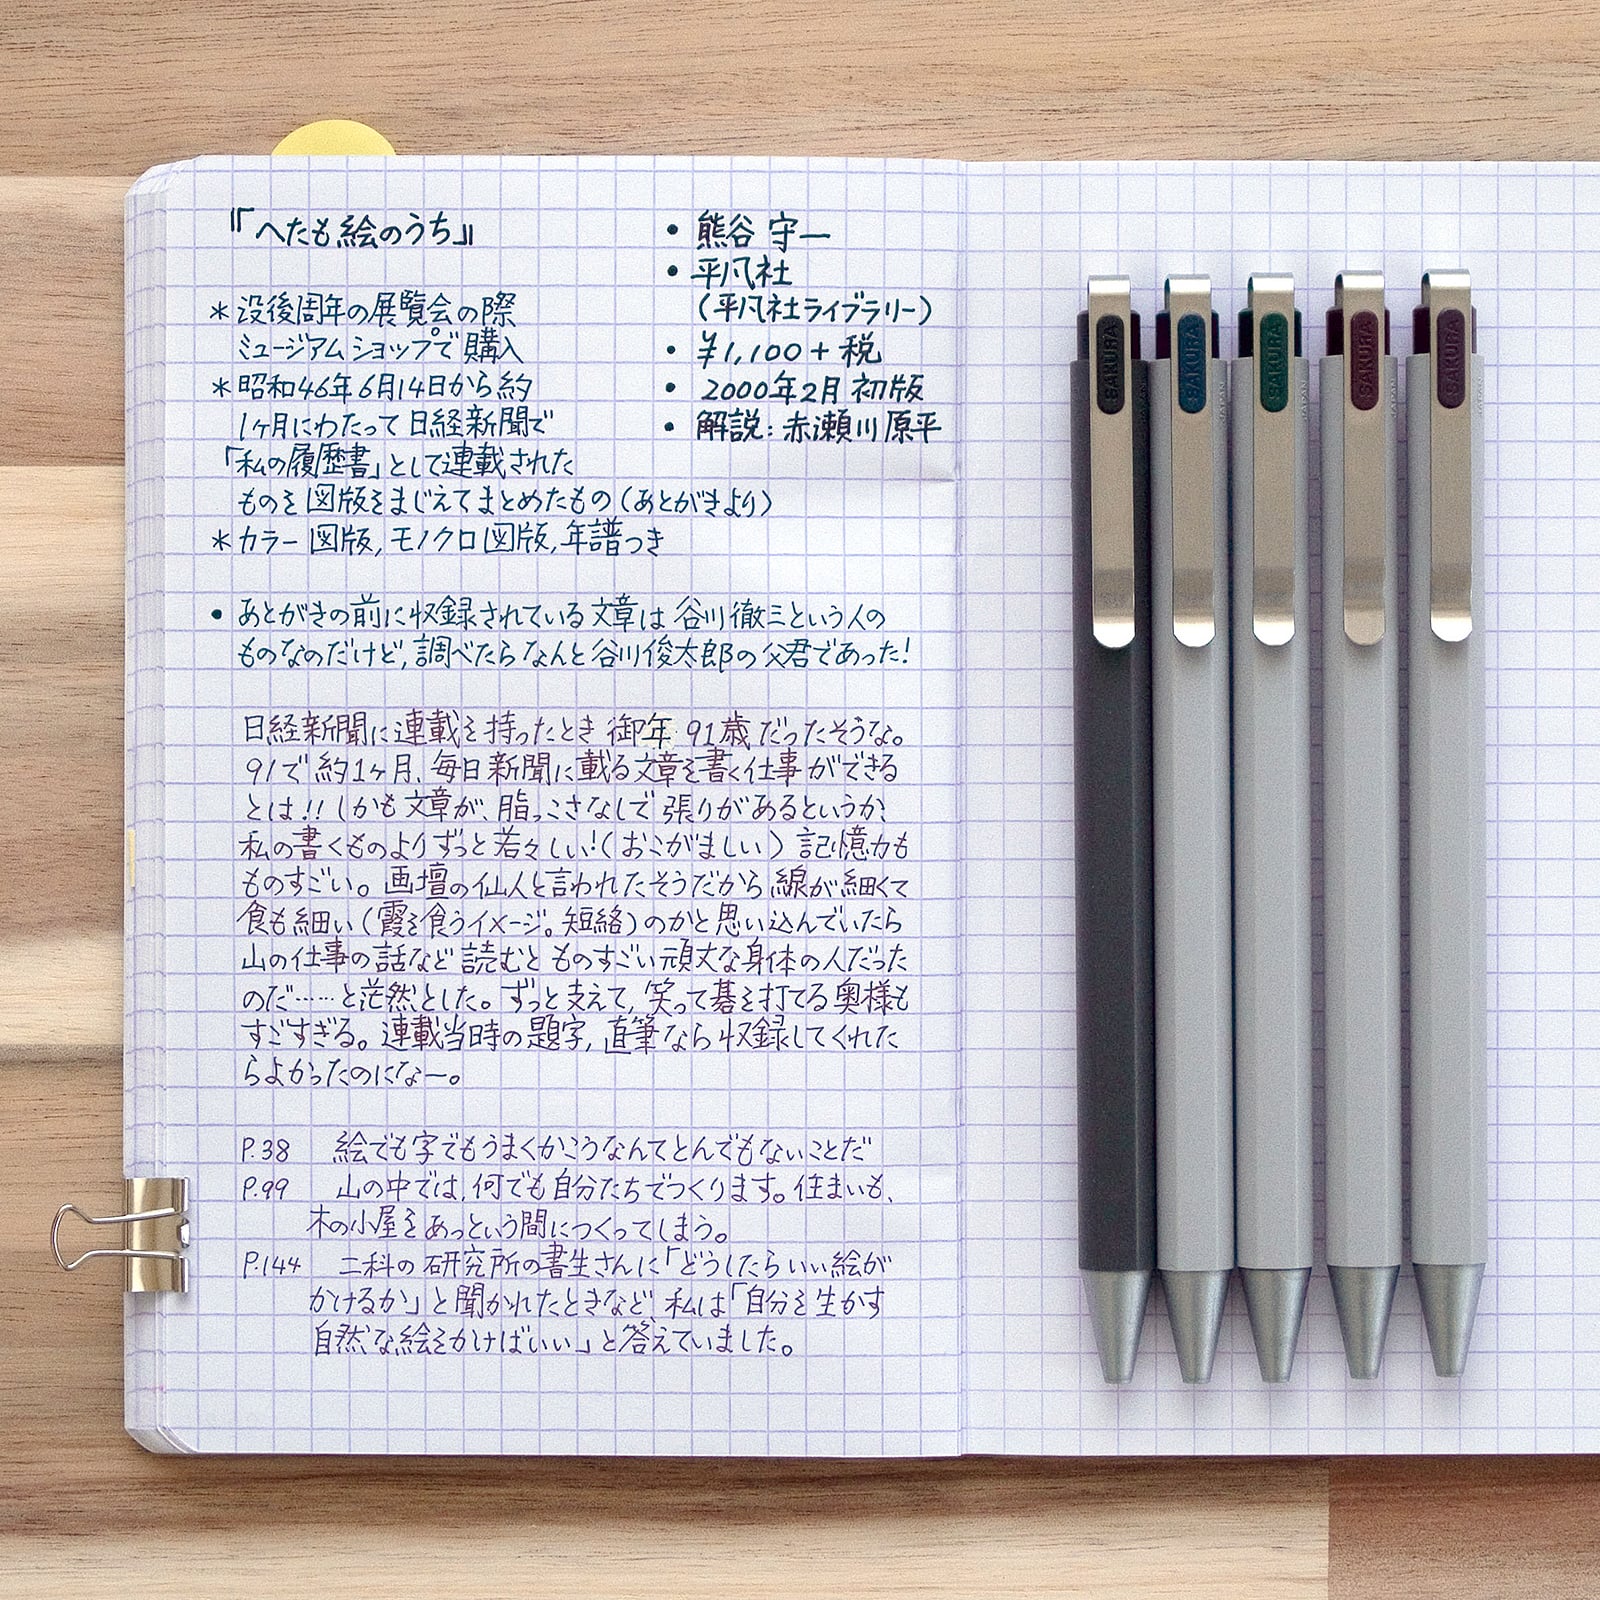 『へたも絵のうち』
• 熊谷 守一
• 平凡社
(平凡社ライブラリー)
• ¥1,100+税
• 2000年2月 初版
• 解説:赤瀬川原平
*没後周年の展覧会の際
ミュージアムショップで購入
*昭和46年6月14日から約
1ヶ月にわたって日経新聞で
「私の履歴書」として連載された
ものを図版をまじえてまとめたもの(あとがきより)
*カラー図版,モノクロ図版,年譜つき
• あとがきの前に収録されている文章は谷川徹三という人の
ものなのだけど,調べたらなんと谷川俊太郎の父君であった!
日経新聞に連載を持ったとき御年91歳だったそうな。
91で約1ヶ月、毎日新聞に載る文章を書く仕事ができる
とは!!しかも文章が、脂っこさなしで張りがあるというか、
私の書くものよりずっと若々しい!(おこがましい)記憶力も
ものすごい。画壇の仙人と言われたそうだから線が細くて
食も細い(霞を食うイメージ。短絡)のかと思い込んでいたら
山の仕事の話など読むとものすごい頑丈な身体の人だった
のだ……と茫然とした。ずっと支えて,笑って碁を打てる奥様も
すごすぎる。連載当時の題字,直筆なら収録してくれた
らよかったのになー。
P.38 絵でも字でもうまくかこうなんてとんでもないことだ
P.99 山の中では,何でも自分たちでつくります。住まいも、
木の小屋をあっという間につくってしまう。
P.144 二科の研究所の書生さんに「どうしたらいい絵が
かけるか」と聞かれたときなど、私は「自分を生かす
自然な絵をかけばいい」と答えていました。
SAKURA
SAKURA
SAKURA
SAKURA
SAKURA
JAPAN
JAPAN